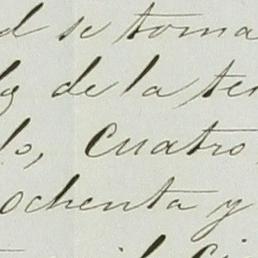 d se toma
de la te
lo, Cuatro
ochenta y